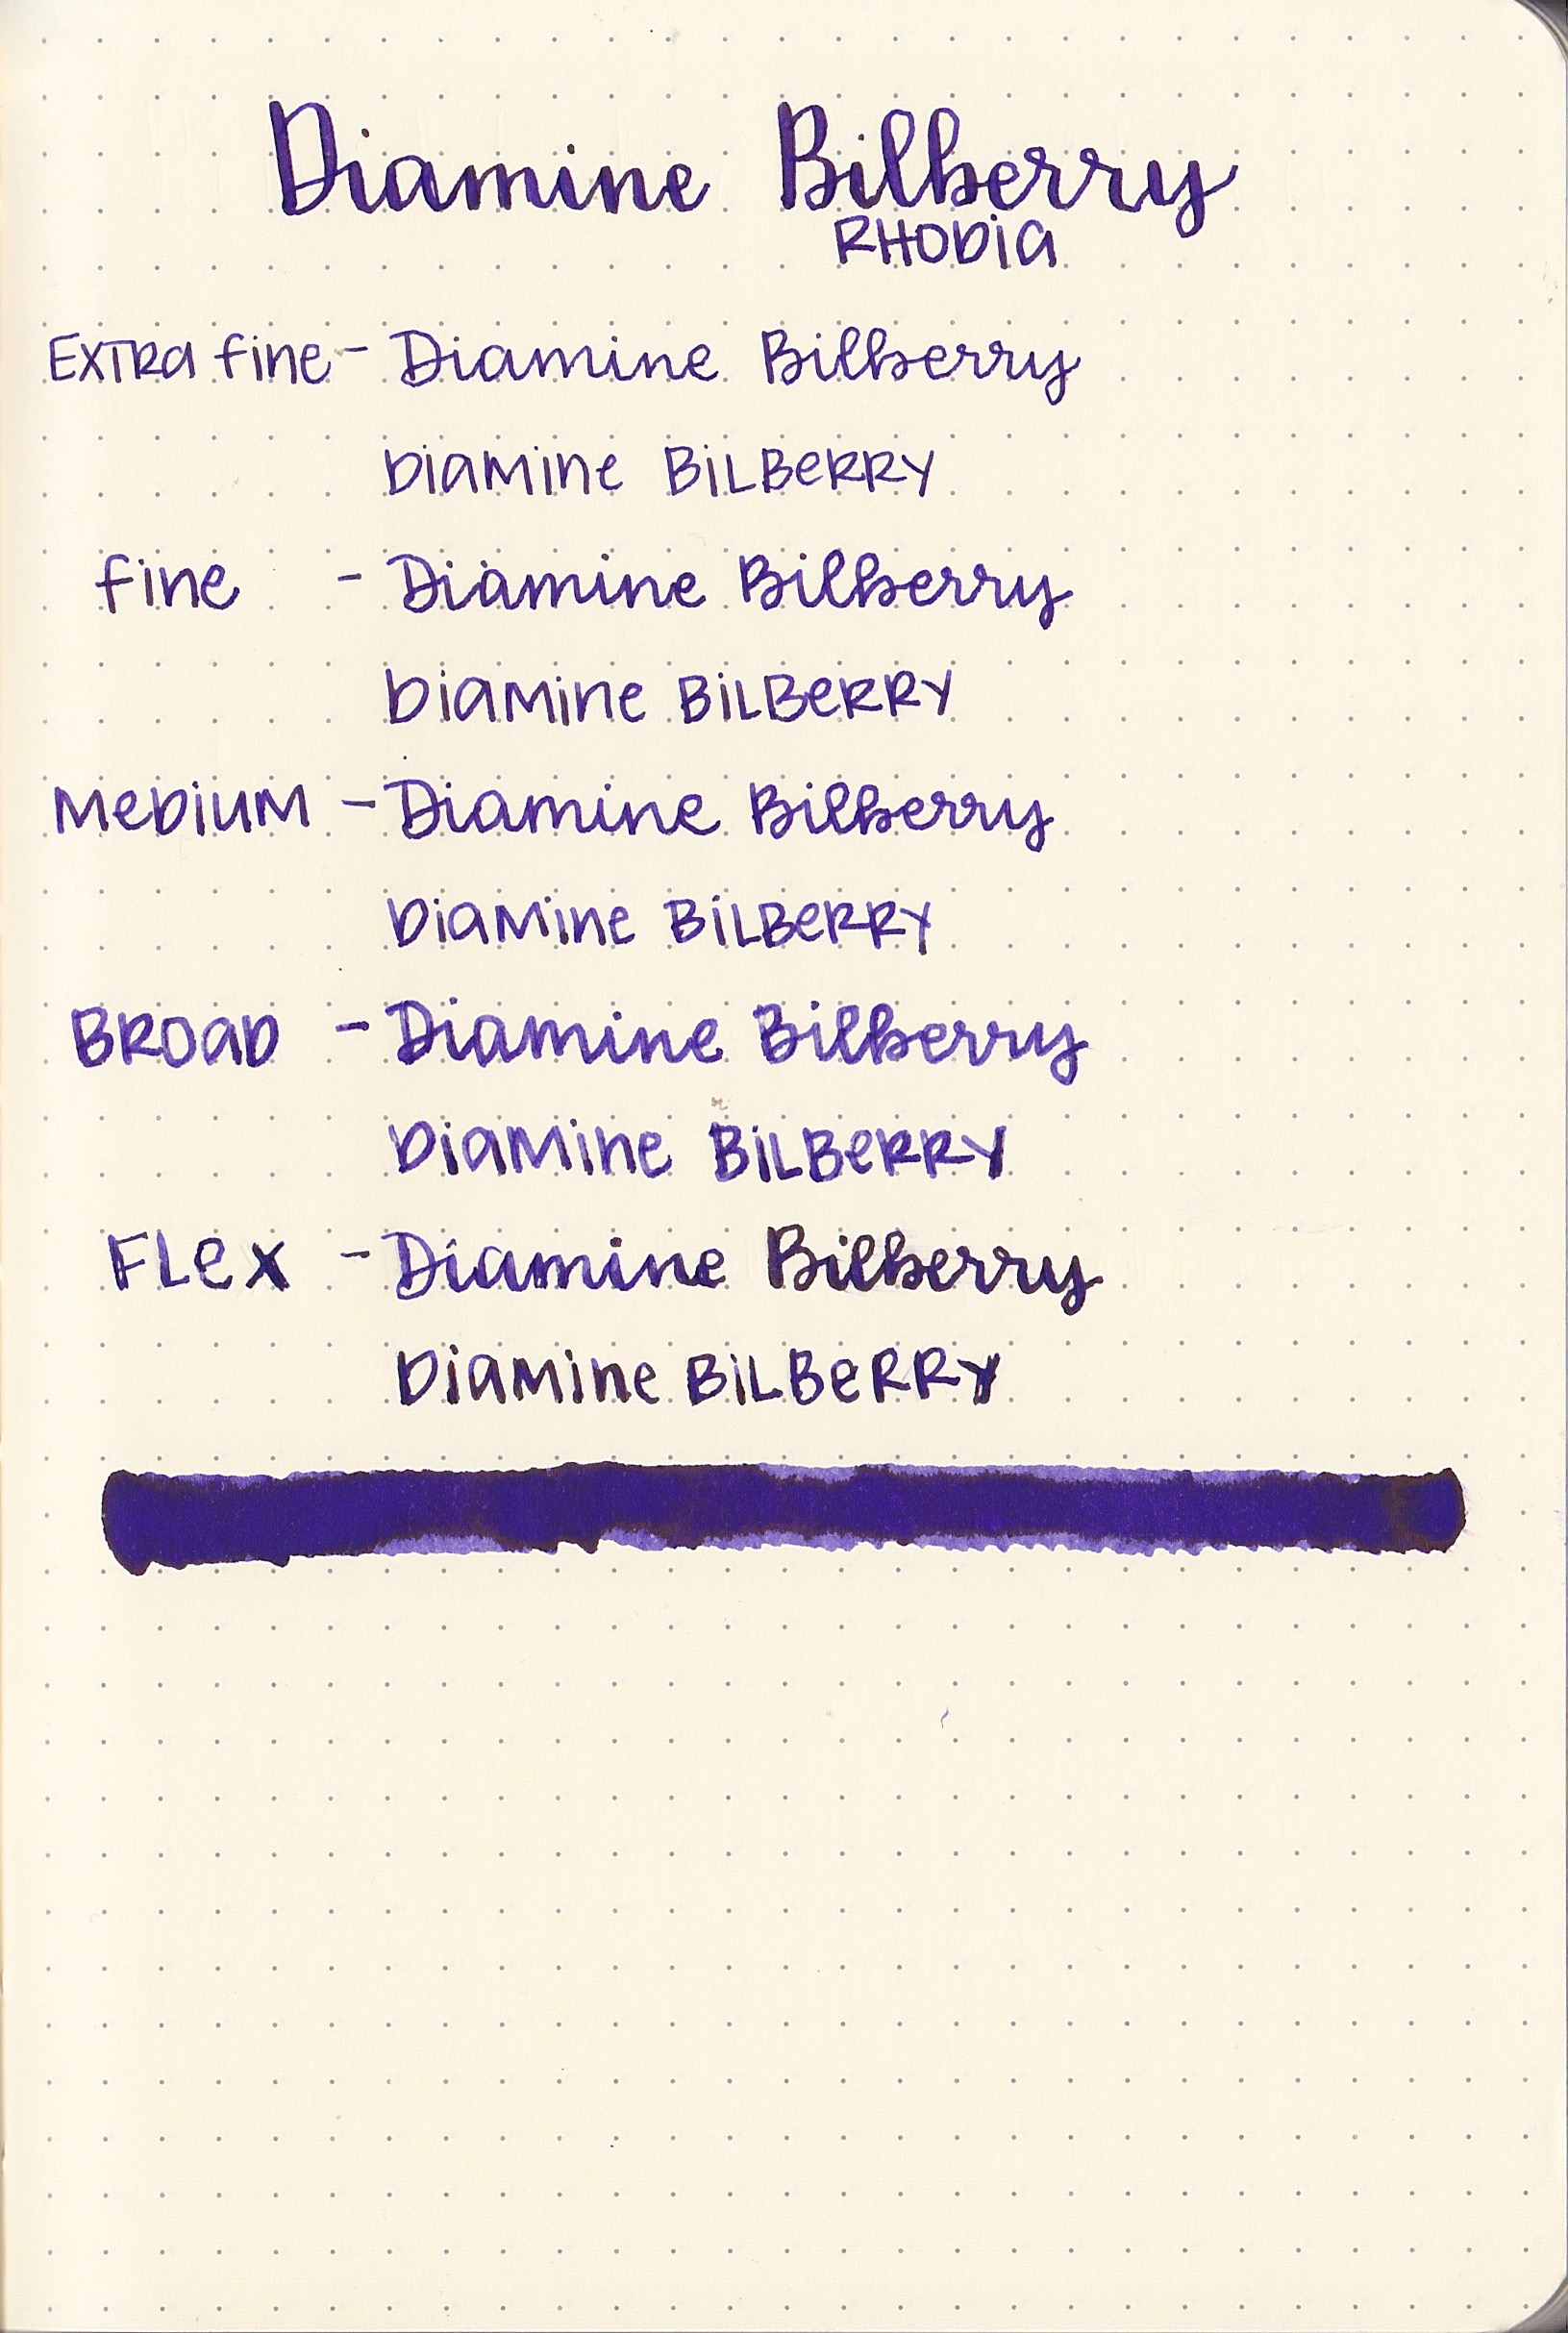 Diamine Bilberry
RHODiA
EXTRa fine - Diamine Bilberry
DiaMine BiLBeRRY
fine - Diamine Bilberry
DiaMine BiLBeRRY
MeDiuM - Diamine Bilberry
DiaMine BiLBeRRY
BROaD - Diamine Bilberry
DiaMine BiLBeRRY
FLex - Diamine Bilberry
DiaMine BiLBeRRY